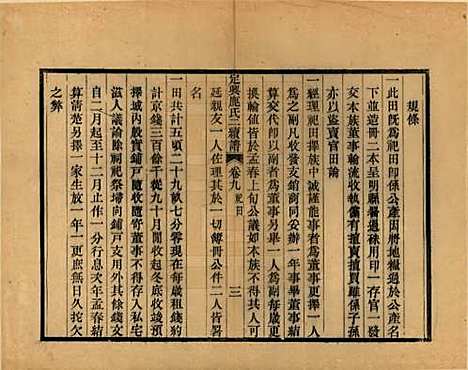 規條
一此田既為祀田即係公產因將地糧過於公產名
下並造冊二本呈明縣署過祿用印一存官一發
交本族董事輪流收執嗣後有盜賣者雖係子孫
亦以盜賣官田論
一經理祀田擇族中誠謹能事者為董事更擇一人
為之副凡收發支銷商同妥辦一年事畢董事結
算交代即以副者為董事另舉一人為副每歲更
換輪值皆於孟春上旬公議如本族不得其人可
定興鹿氏二續譜
卷九 祀田
三
延親友一人佐理其於一切簿冊公件二人皆署
名
一田共計五頃二十九畝七分零現在每歲租錢約
計京錢三百餘千從九十月開收起冬月收竣預
擇城內殷實鋪戶隨收隨寄董事不得存入私宅
滋人議論除祠祀祭埽向鋪戶支用外其餘錢文
自二月起至十二月止作一分行息次年孟春結
算清楚另擇一家生放一年一更庶無日久挓欠
之弊